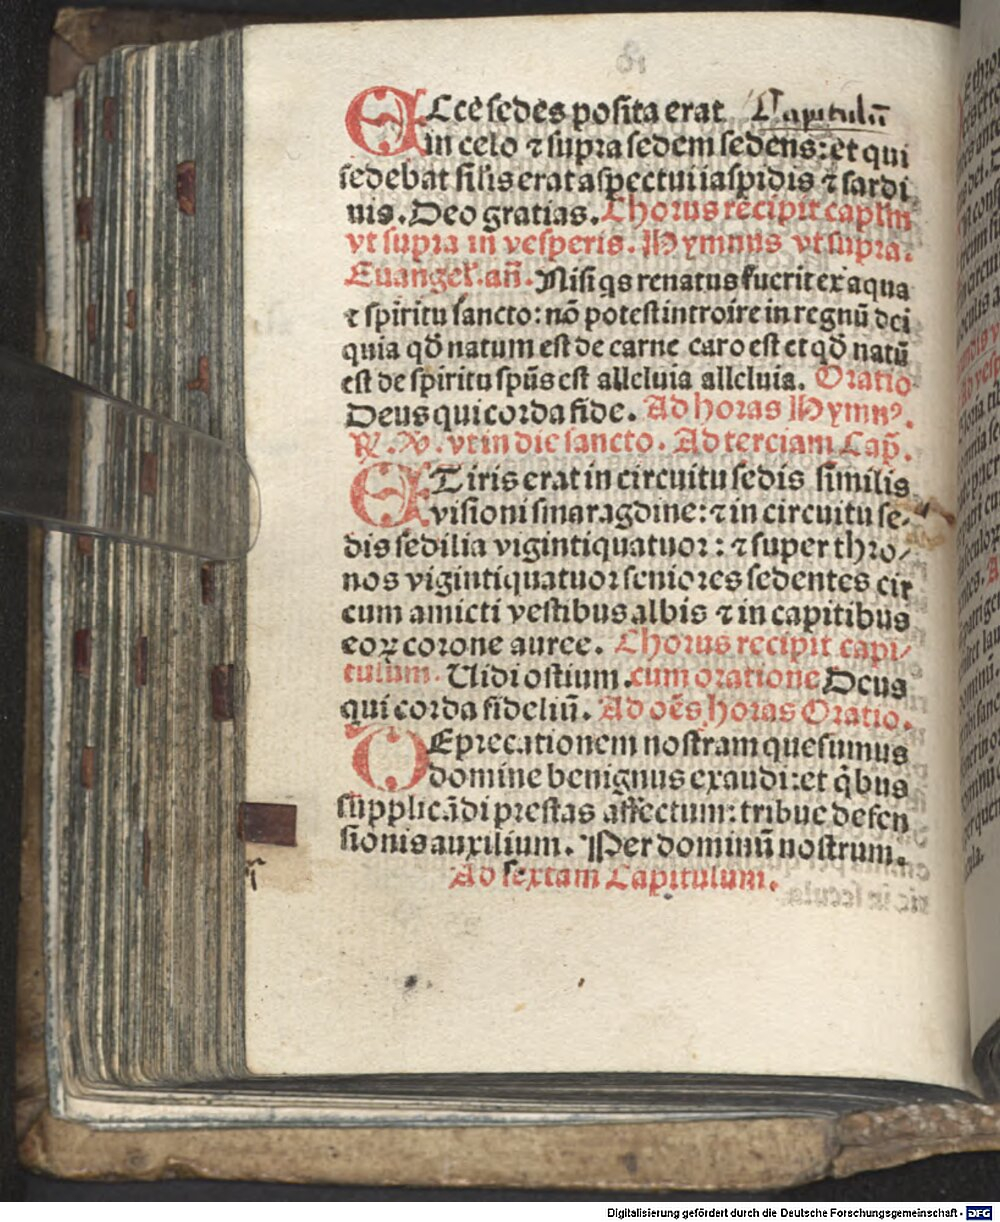 Ecce sedes posita erat Capitulū
in celo ⁊ supra sedem sedens: et qui
sedebat silis erat aspectui iaspidis ⁊ sardi
nis. Deo gratias. Chorus recipit caplm
vt supra in vesperis. Hymnus vt supra.
Euangel. añ. Nisi qs renatus fuerit ex aqua
⁊ spiritu sancto: nō potest introire in regnū dei
quia qđ natum est de carne caro est et qđ natū
est de spiritu spūs est alleluia alleluia. Oratio
Deus qui corda fide. Ad horas Hymnꝰ.
℟. ℣. vt in die sancto. Ad terciam Cap̄.
ET iris erat in circuitu sedis similis
visioni smaragdine: ⁊ in circuitu se-
dis sedilia vigintiquatuor: ⁊ super thro-
nos vigintiquatuor seniores sedentes cir
cum amicti vestibus albis ⁊ in capitibus
eoꝝ corone auree. Chorus recipit capi-
tulum. Uidi ostium. cum oratione Deus
qui corda fideliū. Ad oēs horas Oratio.
DEprecationem nostram quesumus
domine benignus exaudi: et q̄bus
supplicādi prestas affectum: tribue defen
sionis auxilium. Per dominū nostrum.
Ad sextam Capitulum.
Digitalisierung gefördert durch die Deutsche Forschungsgemeinschaft - DFG